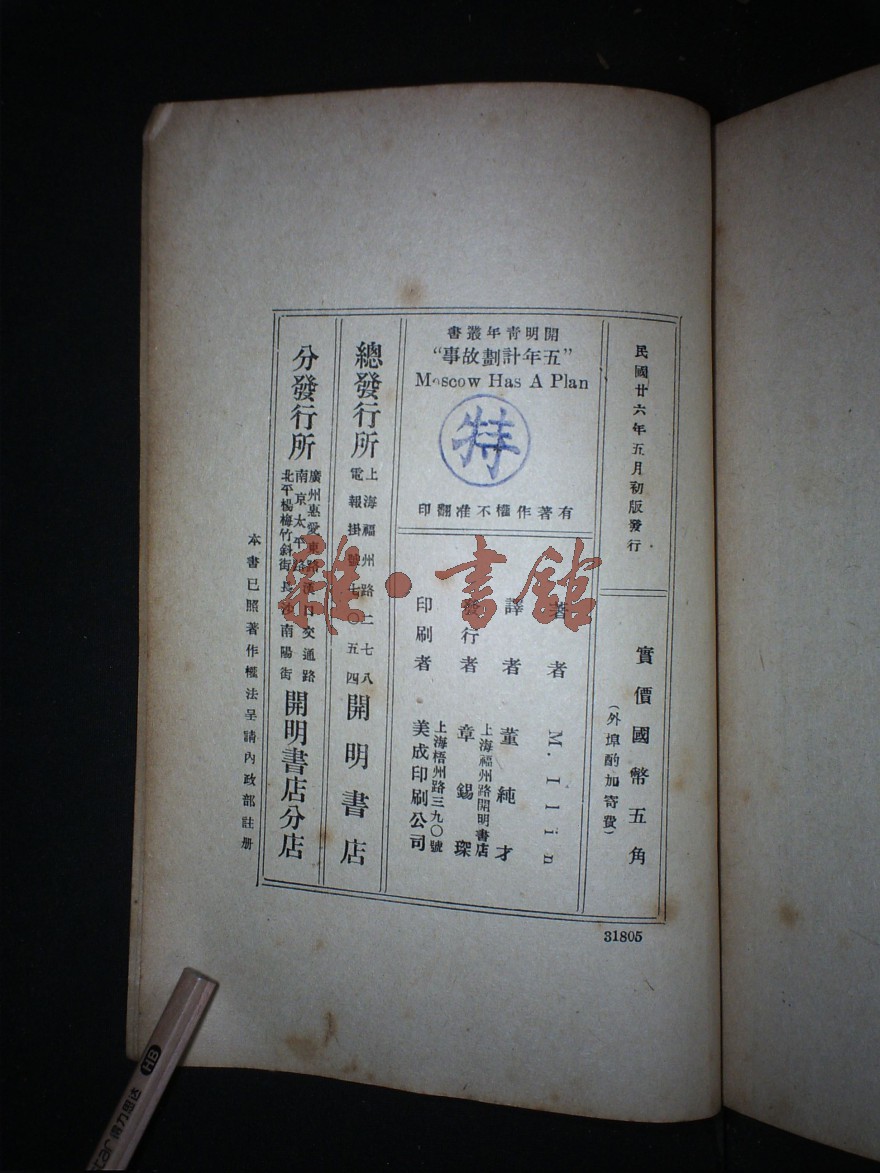 民國廿六年五月初版發行
實價國幣五角
(外埠酌加寄費)
開明青年叢書
“五年計劃故事”
Moscow Has A Plan
特
有著作權不准翻印
著者 M. Ilin
譯者 董純才
發行者 章錫琛
上海福州路開明書店
印刷者 美成印刷公司
上海梧州路三九〇號
總發行所 開明書店
上海福州路二七八
電報掛號七〇五四
分發行所 開明書店分店
廣州惠愛東路 漢口交通路
南京太平路
北平楊梅竹斜街 長沙南陽街
本書已照著作權法呈請內政部註册
31805
雜·書館
HB
得力思达